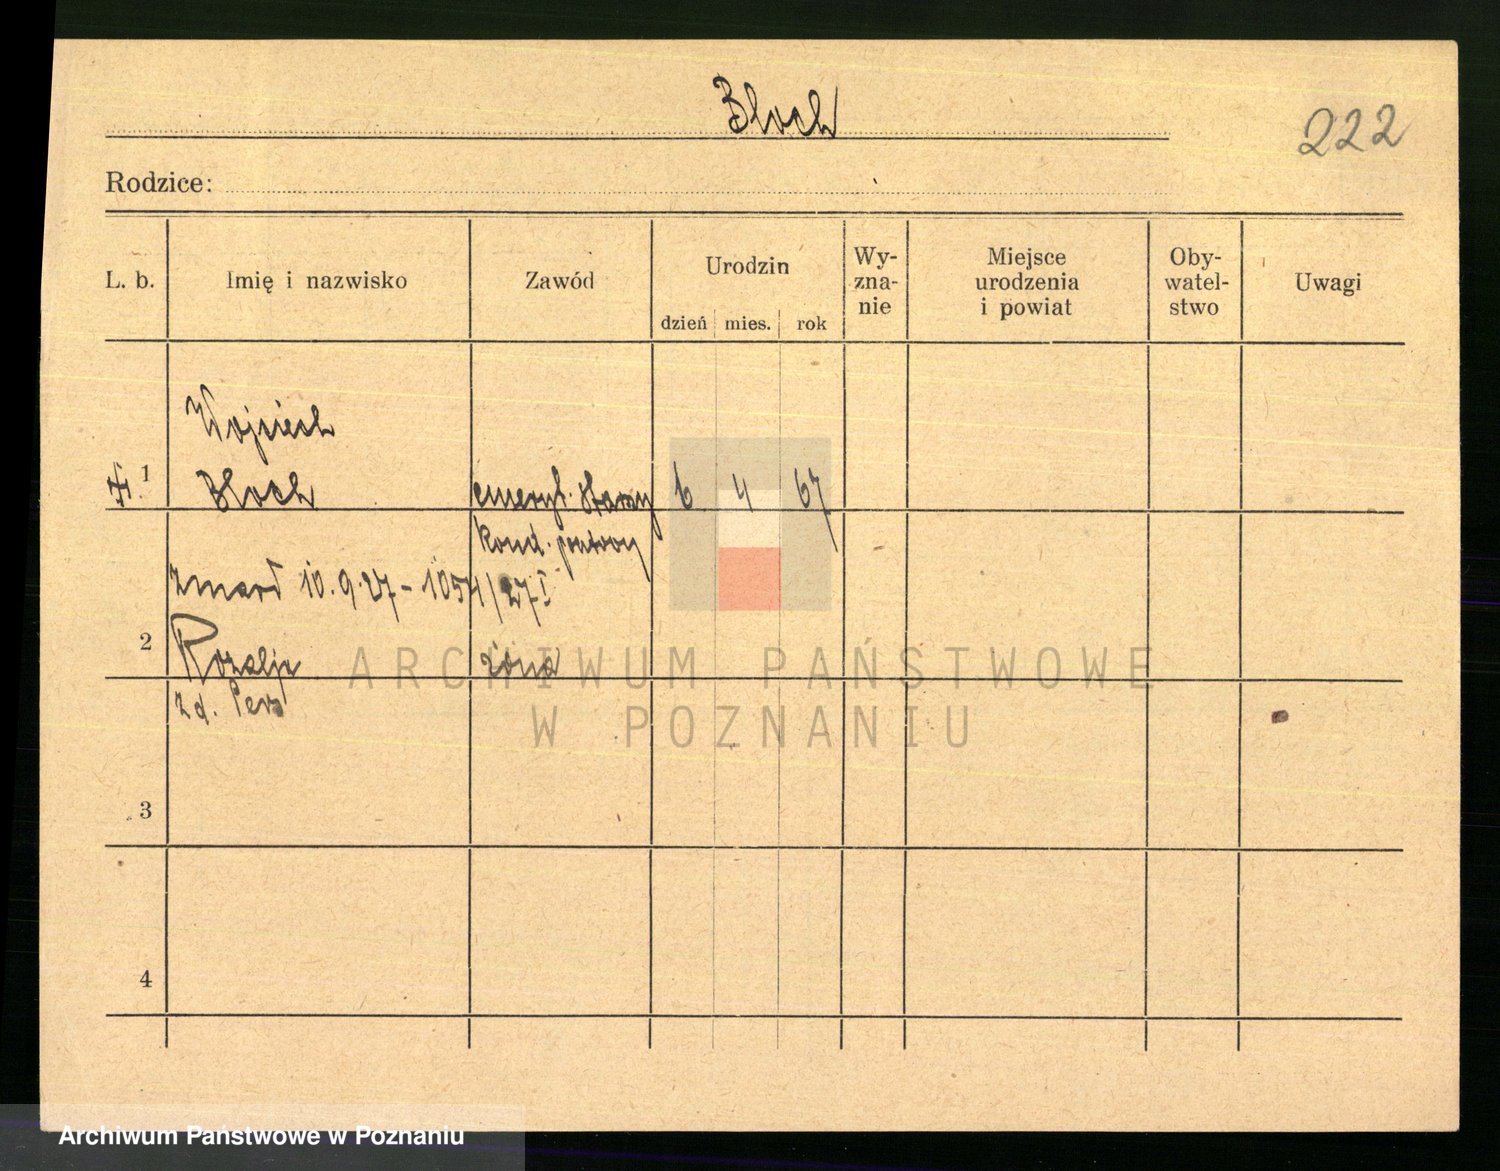 Bloch
222
Rodzice:
L. b.
Imię i nazwisko
Zawód
Urodzin
dzień mies. rok
Wy-
zna-
nie
Miejsce
urodzenia
i powiat
Oby-
watel-
stwo
Uwagi
Wojciech
1
Bloch
emeryt. starszy
6 4 67
kond. pocztowy
zmarł 10.9.27 - 1054/27 I
2
Rozalja
żona
zd.
3
4
ARCHIWUM PAŃSTWOWE
W POZNANIU
Archiwum Państwowe w Poznaniu